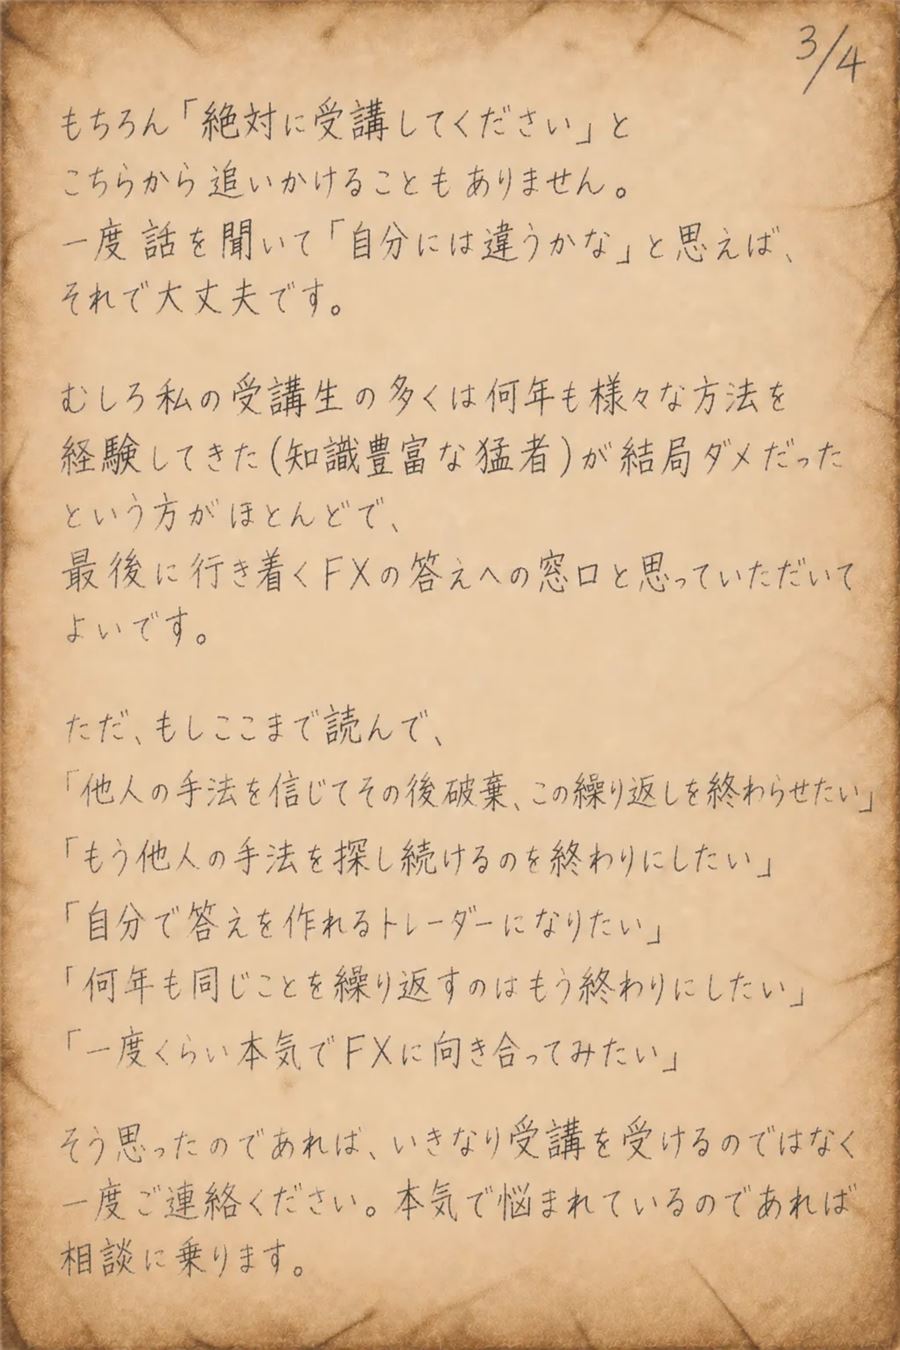 3/4
もちろん「絶対に受講してください」と
こちらから追いかけることもありません。
一度話を聞いて「自分には違うかな」と思えば、
それで大丈夫です。
むしろ私の受講生の多くは何年も様々な方法を
経験してきた(知識豊富な猛者)が結局ダメだった
という方がほとんどで、
最後に行き着くFXの答えへの窓口と思っていただいて
よいです。
ただ、もしここまで読んで、
「他人の手法を信じてその後破棄、この繰り返しを終わらせたい」
「もう他人の手法を探し続けるのを終わりにしたい」
「自分で答えを作れるトレーダーになりたい」
「何年も同じことを繰り返すのはもう終わりにしたい」
「一度くらい本気でFXに向き合ってみたい」
そう思ったのであれば、いきなり受講を受けるのではなく
一度ご連絡ください。本気で悩まれているのであれば
相談に乗ります。